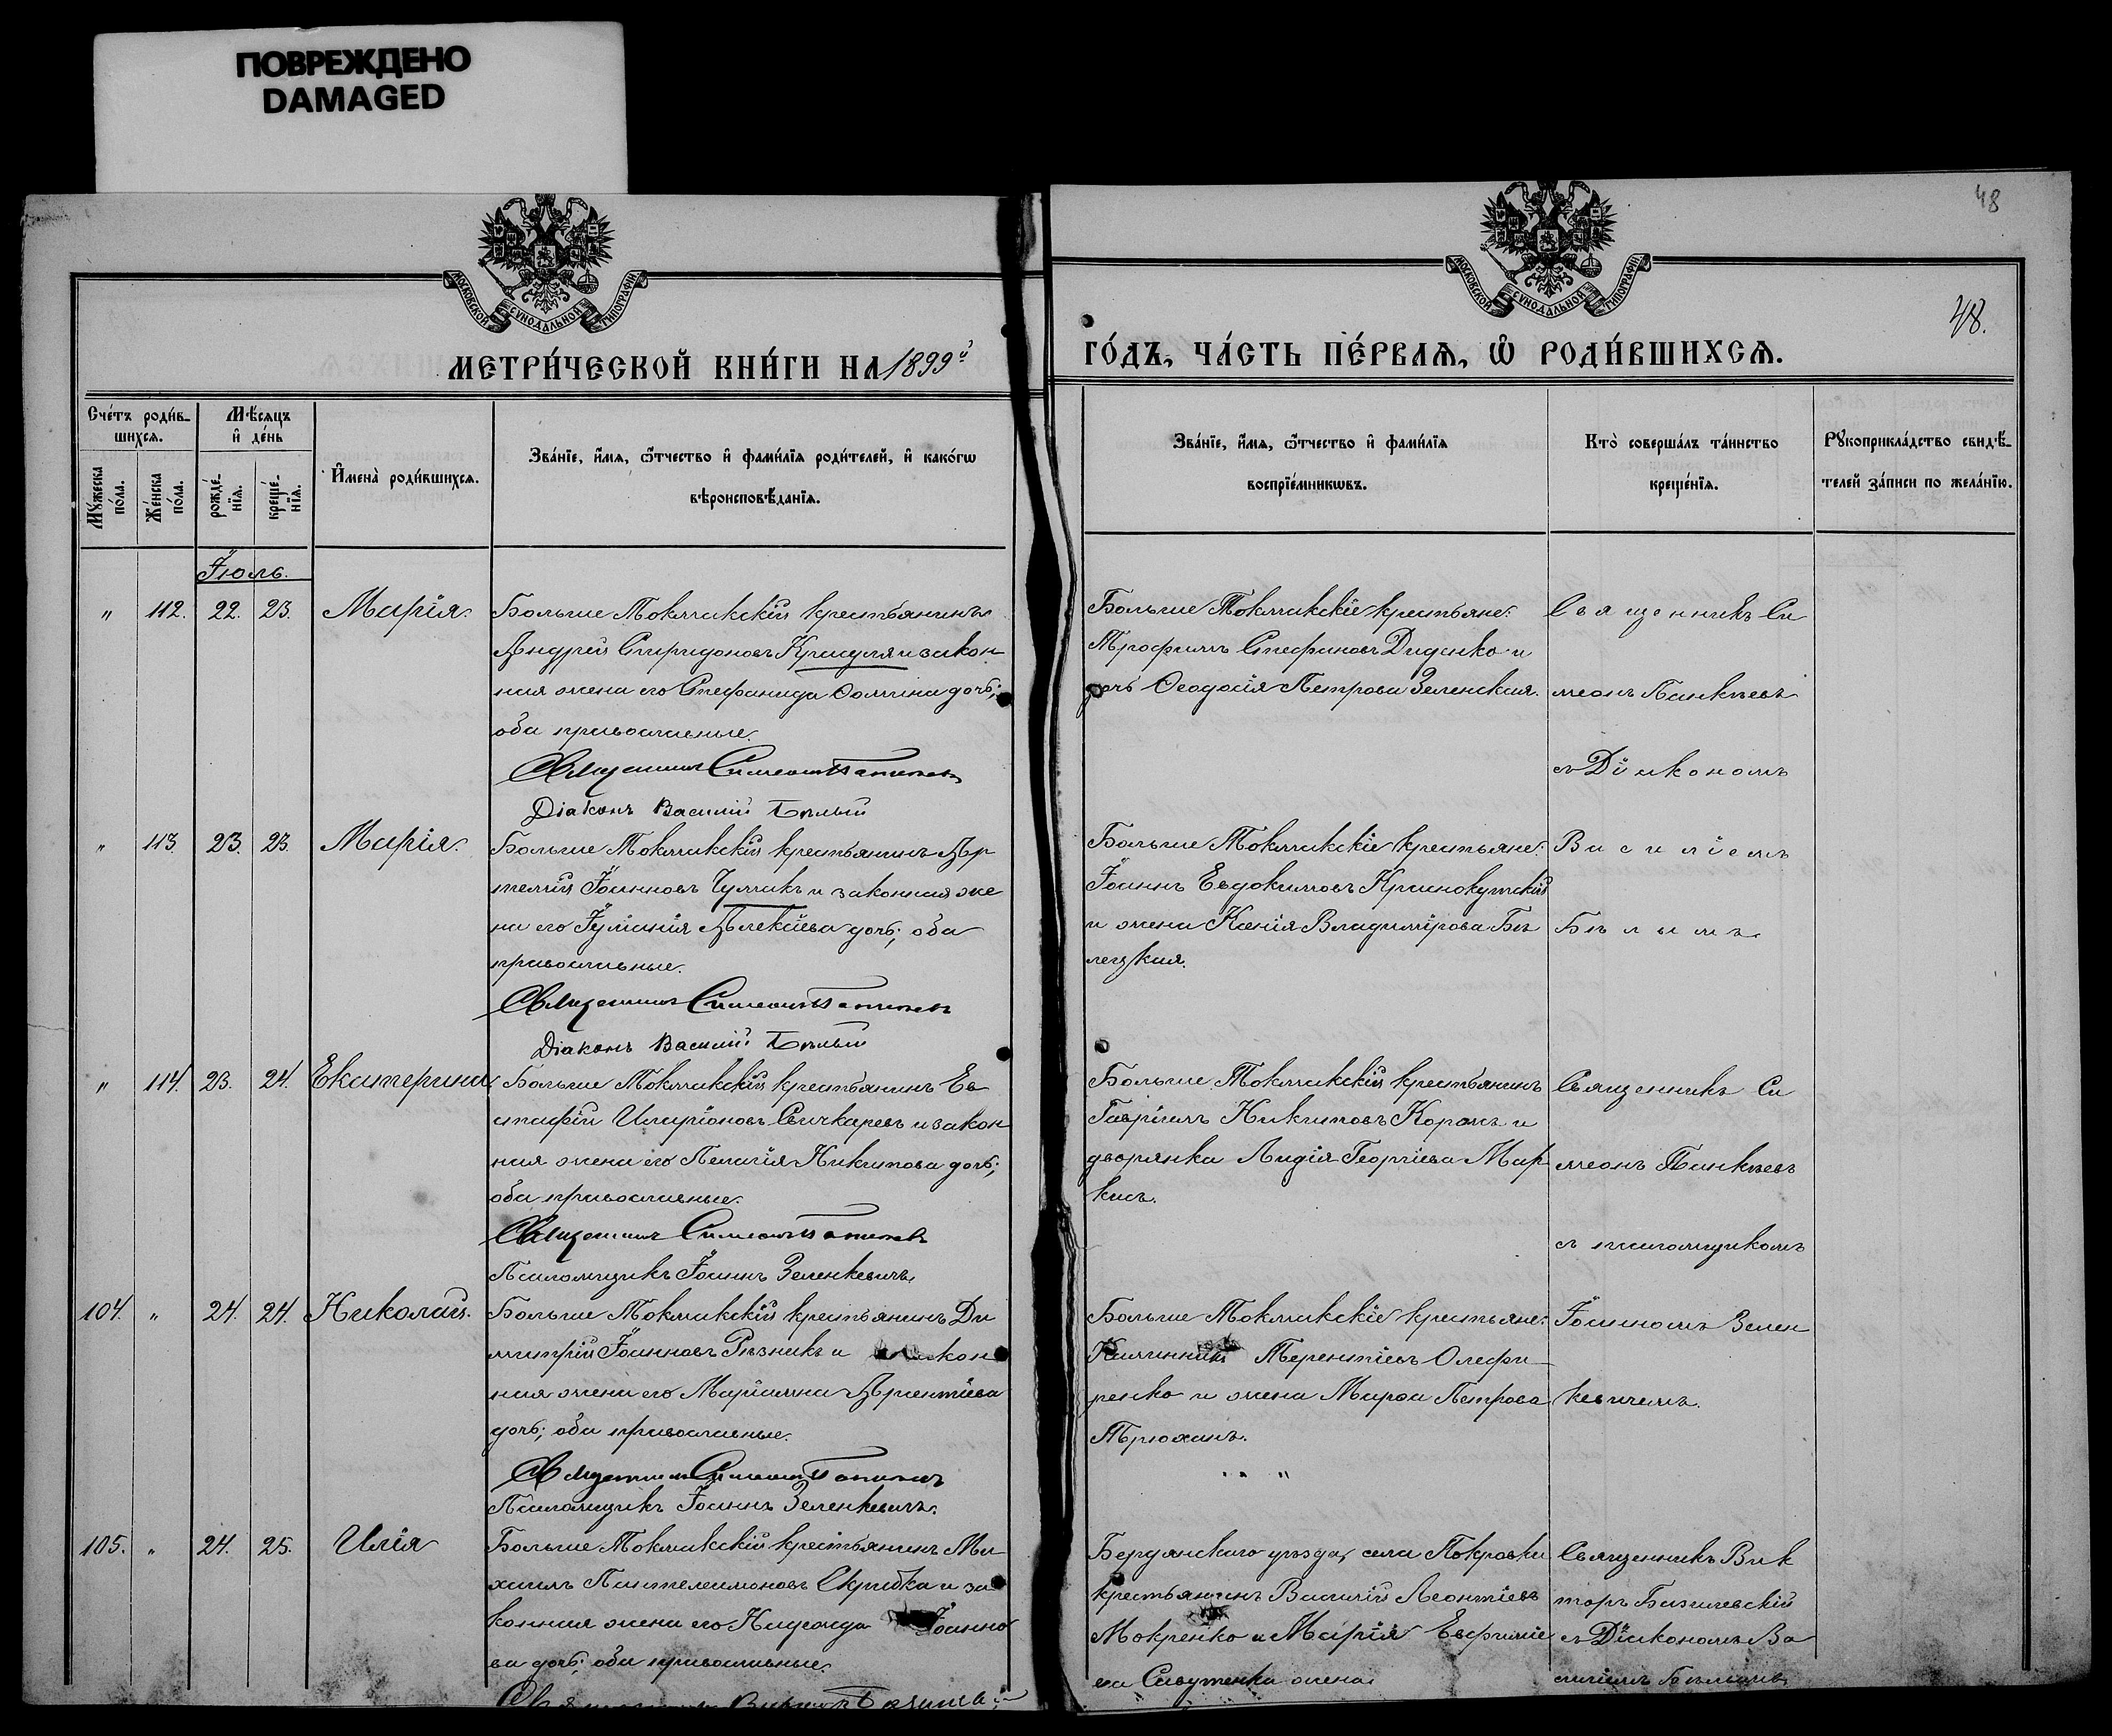 ПОВРЕЖДЕНО
DAMAGED
48
МОСКОВСКОЙ СѴНОДАЛЬНОЙ ТИПОГРАФІИ
МОСКОВСКОЙ СѴНОДАЛЬНОЙ ТИПОГРАФІИ
48.
МЕТРИ́ЧЕСКОЙ КНИ́ГИ НА 1899й
ГО́ДЪ, ЧА́СТЬ ПЕ́РВАѦ, Ѡ РОДИ́ВШИХСѦ.
Сче́тъ роди́в-
шихсѧ.
Мꙋ́жеска по́ла.
Же́нска по́ла.
Мѣ́сѧцъ
и҆ де́нь
рожде́-
нїѧ.
креще́-
нїѧ.
И҆мена̀ роди́вшихсѧ.
Зва́нїе, и҆́мѧ, ѻ҆́тчество и҆ фами́лїѧ роди́телей, и҆ како́гѡ
вѣроисповѣ́данїѧ.
Зва́нїе, и҆́мѧ, ѻ҆́тчество и҆ фами́лїѧ
воспрїе́мникѡвъ.
Кто̀ соверша́лъ та́инство
креще́нїѧ.
Рꙋкоприкла́дство свидѣ́-
телей за́писи по жела́нїю.
Іюль.
" 112. 22. 23. Марія.
Больше Токмакскій крестьянинъ
Андрей Спиридоновъ и закон
ная жена его Стефанида Фомина дочь;
оба православные.
Священникъ Симеонъ Панкѣевъ
Діаконъ Василій Бѣлый
Больше Токмакскіе крестьяне:
Трофимъ Стефановъ Диденко и
дочь Ѳеодосія Петрова Зеленская.
Священникъ Си
меонъ Панкѣевъ
съ Діакономъ
" 113. 23. 23. Марія.
Больше Токмакскій крестьянинъ Ар
темій Іоанновъ Чумакъ и законная же
на его Іуліанія Алексіева дочь; оба
православные.
Священникъ Симеонъ Панкѣевъ
Діаконъ Василій Бѣлый
Больше Токмакскіе крестьяне:
Іоаннъ Евдокимовъ Краснокутскій
и жена Ксенія Владимірова Бѣ
лецкая.
Василіемъ
Бѣлымъ.
" 114. 23. 24. Екатерина
Больше Токмакскій крестьянинъ Ев
стафій Иларіоновъ Свичкаревъ и закон
ная жена его Пелагія Никитова дочь;
оба православные.
Священникъ Симеонъ Панкѣевъ
Псаломщикъ Іоаннъ Зеленкевичъ
Больше Токмакскій крестьянинъ
Гавріилъ Никитовъ и
дворянка Лидія Георгіева Мар
кисъ.
Священникъ Си
меонъ Панкѣевъ
съ псаломщикомъ
104. " 24. 24. Николай.
Больше Токмакскій крестьянинъ Ди
митрій Іоанновъ Рѣзникъ и закон
ная жена его Маріамна Арсентіева
дочь; оба православные.
Священникъ Симеонъ Панкѣевъ
Псаломщикъ Іоаннъ Зеленкевичъ.
Больше Токмакскіе крестьяне:
Терентіевъ Олефи-
ренко и жена Марѳа Петрова
Трюханъ.
Іоанномъ Зелен
кевичемъ.
105. " 24. 25. Илія
Больше Токмакскій крестьянинъ Ми
хаилъ Пантелеимоновъ Скрибка и за
конная жена его Надежда Іоанно
ва дочь; оба православные.
Священникъ Викторъ
Бердянскаго уѣзда, села Покровки
крестьянинъ Василій Леонтіевъ
Мокренко и Марія Евфиміе
ва жена
Священникъ Вик
торъ Базилевскій
съ Діакономъ Ва
силіемъ Бѣлымъ